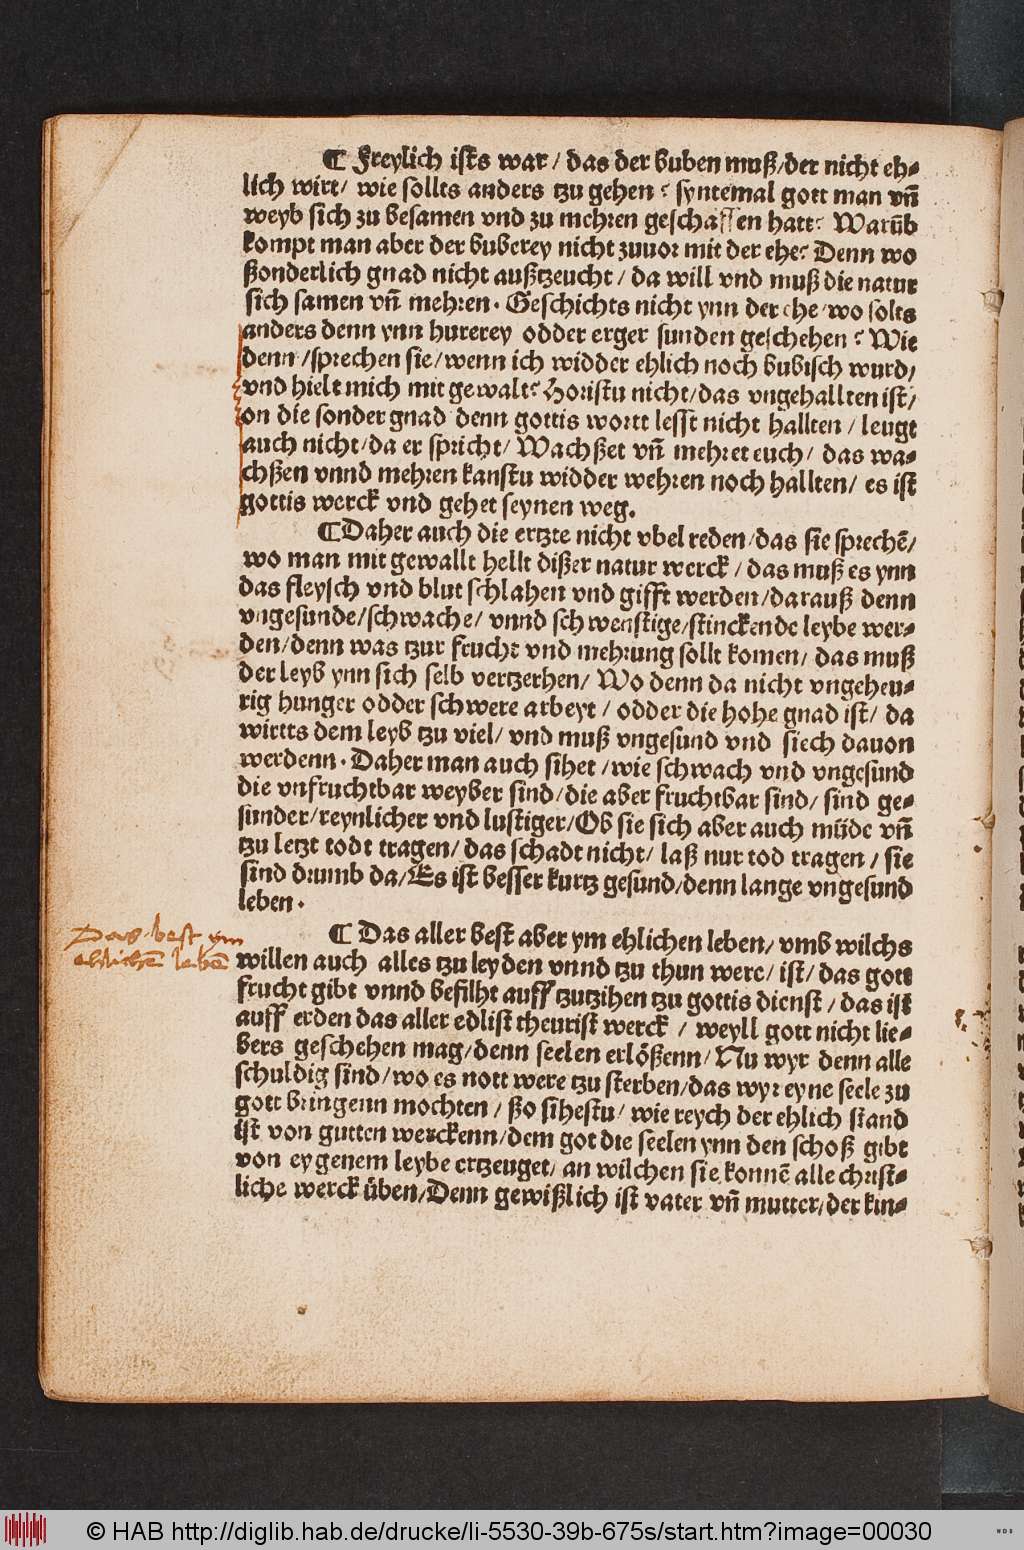 ¶ Freylich ists war / das der buben muß / der nicht eh⸗
lich wirt / wie sollts anders tzu gehen ? syntemal gott man vñ
weyb sich zu besamen vnd zu mehren geschaffen hatt ? Warūb
kompt man aber der buberey nicht zuuor mit der ehe ? Denn wo
ßonderlich gnad nicht außtzeucht / da will vnd muß die natur
sich samen vñ mehren . Geschichts nicht ynn der ehe / wo solts
anders denn ynn hurerey odder erger sunden geschehen ? Wie
denn / sprechen sie / wenn ich widder ehlich noch bubisch wurd /
vnd hielt mich mit gewalt ? Horistu nicht / das vngehallten ist /
on die sonder gnad denn gottis wortt lesst nicht hallten / leugt
auch nicht / da er spricht / Wachßet vñ mehret euch / das wa⸗
chßen vnnd mehren kanstu widder wehren noch hallten / es ist
gottis werck vnd gehet seynen weg.
¶ Daher auch die ertzte nicht vbel reden / das sie sprechē /
wo man mit gewallt hellt dißer natur werck / das muß es ynn
das fleysch vnd blut schlahen vnd gifft werden / darauß denn
vngesunde / schwache / vnnd schwenstige / stinckende leybe wer⸗
den / denn was tzur frucht vnd mehrung sollt komen / das muß
der leyb ynn sich selb vertzerhen / Wo denn da nicht vngeheu⸗
rig hunger odder schwere arbeyt / odder die hohe gnad ist / da
wirtts dem leyb tzu viel / vnd muß vngesund vnd siech dauon
werdenn . Daher man auch sihet / wie schwach vnd vngesund
die vnfruchtbar weyber sind / die aber fruchtbar sind / sind ge⸗
sunder / reynlicher vnd lustiger / Ob sie sich aber auch müde vñ
tzu letzt todt tragen / das schadt nicht / laß nur tod tragen / sie
sind drumb da / Es ist besser kurtz gesund / denn lange vngesund
leben .
Das best ym
ehlichē lebē
¶ Das aller best aber ym ehlichen leben / vmb wilchs
willen auch alles tzu leyden vnnd tzu thun were / ist / das gott
frucht gibt vnnd befilht auff tzutzihen tzu gottis dienst / das ist
auff erden das aller edlist theurist werck / weyll gott nicht lie⸗
bers geschehen mag / denn seelen erlößenn / Nu wyr denn alle
schuldig sind / wo es nott were tzu sterben / das wyr eyne seele zu
gott bringenn mochten / ßo sihestu / wie reych der ehlich stand
ist von gutten werckenn / dem got die seelen ynn den schoß gibt
von eygenem leybe ertzeuget / an wilchen sie konnē alle christ⸗
liche werck üben / Denn gewißlich ist vater vñ mutter / der kin⸗
© HAB http://diglib.hab.de/drucke/li-5530-39b-675s/start.htm?image=00030